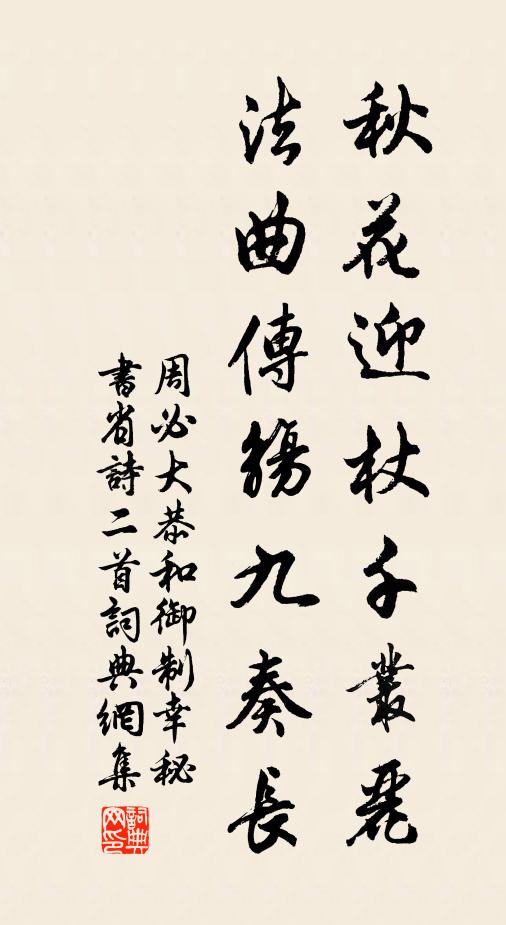 秋花迎杖千叢麗
法曲傳觴九奏長
周必大恭和御制幸秘
書省詩二首詞典網集
詞典網印